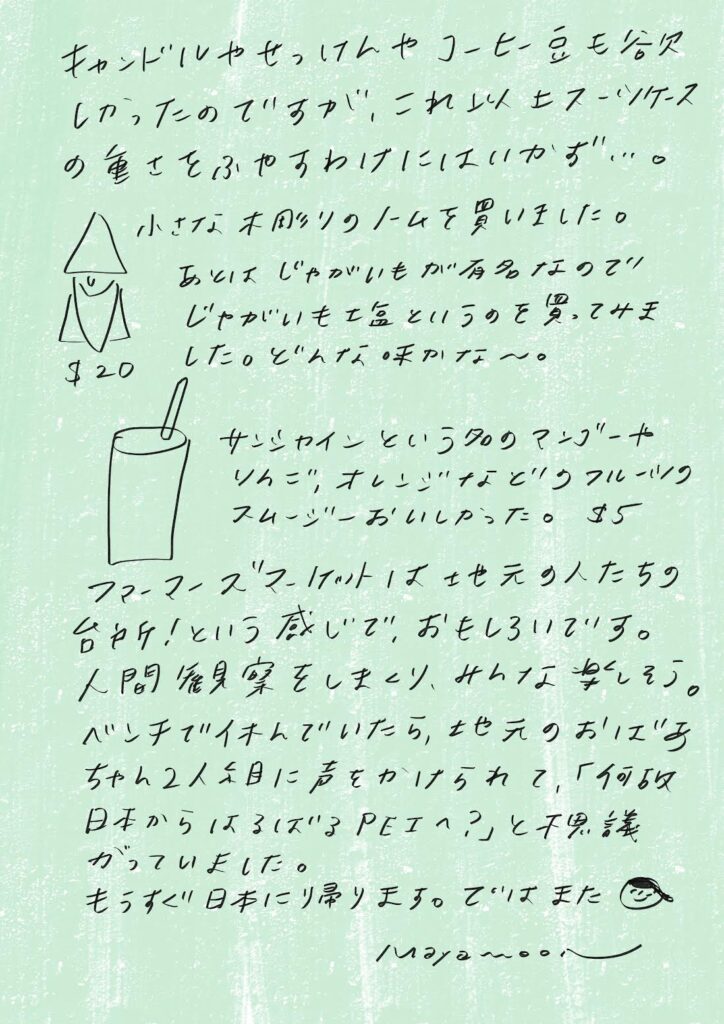 キャンドルやせっけんやコーヒー豆も欲
しかったのですが、これ以上スーツケース
の重さをふやすわけにはいかず…。
小さな木彫りのノームを買いました。
あとはじゃがいもが有名なので
じゃがいも塩というのを買ってみま
した。どんな味かな〜。
$20
サンシャインという名のマンゴーや
りんご、オレンジなどのフルーツの
スムージーおいしかった。 $5
ファーマーズマーケットは地元の人たちの
台所!という感じで、おもしろいです。
人間観察をしまくり、みんな楽しそう。
ベンチで休んでいたら、地元のおばあ
ちゃん2人組に声をかけられて、「何故
日本からはるばるPEIへ?」と不思議
がっていました。
もうすぐ日本に帰ります。ではまた
Mayamoon